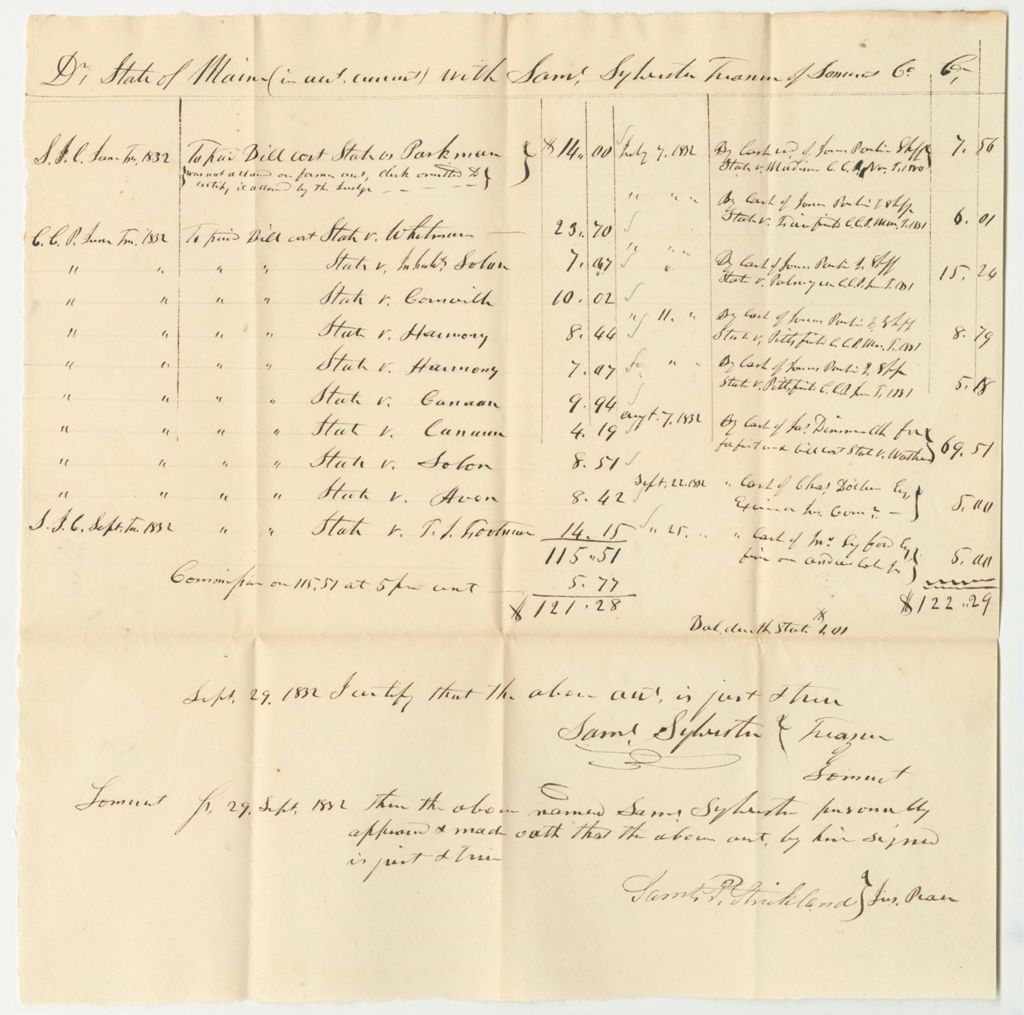 Dr. State of Maine (in acct. current) with Saml. Sylvester Treasurer of Somerset Co. Cr.
S.J.C. June Tm. 1832 To paid Bill cost State vs Parkman $14.00
was not allowed on former acct, clerk omitted to
certify it allowed by the Judge
C.C.P. June Tm. 1832 To paid Bill cost State v. Whitman 23.70
" " " " State v. Inhabts. Solon 7.47
" " " " State v. Cornville 10.02
" " " " State v. Harmony 8.44
" " " " State v. Harmony 7.07
" " " " State v. Canaan 9.94
" " " " State v. Canaan 4.19
" " " " State v. Solon 8.51
" " " " State v. Avon 8.42
S.J.C. Sept. Tm. 1832 " " State v. T. J. Footman 14.15
115.51
Commission on 115,51 at 5 per cent 5.77
$121.28
July 7, 1832 By Cash recd. of Jones Shff 7.56
State v. Madison C.C.P. Nov. T. 1830
" " " By Cash of Jones Shff
State v. C.C.P. Mar. T. 1831 6.01
" " By Cash of Jones Shff 15.24
State v. Palmyra C.C.P. Jun T. 1831
" 11. " By Cash of Jones Shff
State v. Pittsfield C.C.P. Mar. T. 1831 8.79
" " " By Cash of Jones Shff
State v. Pittsfield C.C.P. Jun T. 1831 5.18
Augt. 7, 1832 By Cash of Jas. Dinsmore for
bill cost State v. 69.51
Sept. 22. 1832 " Cash of Chas. Esq. 5.00
" 25. " " Cash of Esq
fine on 5.00
$122.29
Bal. due the State $1.01
Sept. 29, 1832 I certify that the above acct. is just & true
Saml. Sylvester Treasurer
of
Somerset
Somerset ss. 29. Sept. 1832 then the above named Saml. Sylvester personally
appeared & made oath that the above acct. by him signed
is just & true
Saml. P. Strickland Jus. Peace